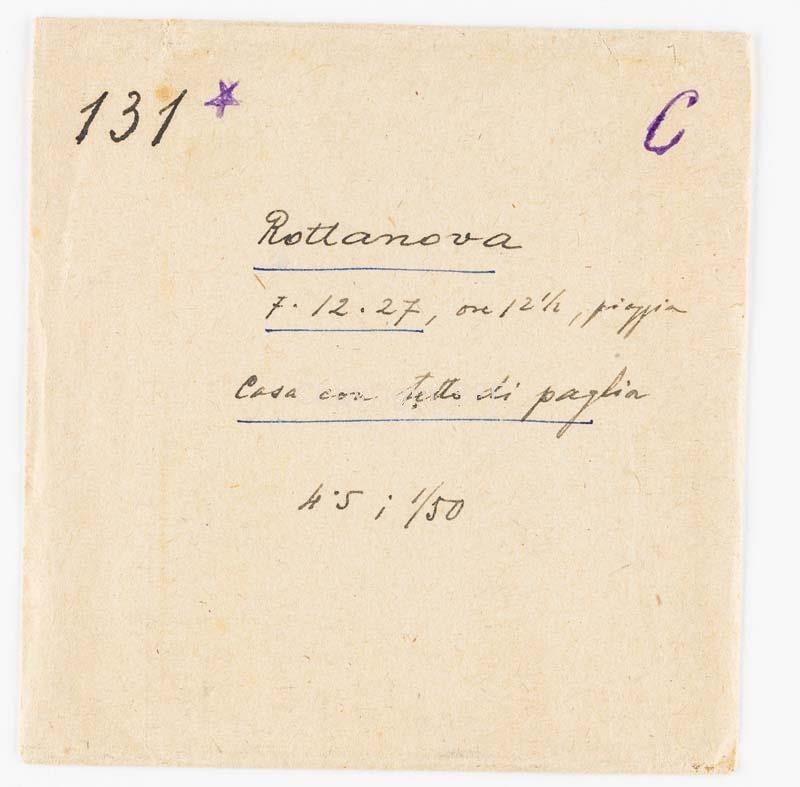 131 * C
Rottanova
7.12.27, ore 12 1/2, pioggia
Casa con tetto di paglia
4.5 ; 1/50